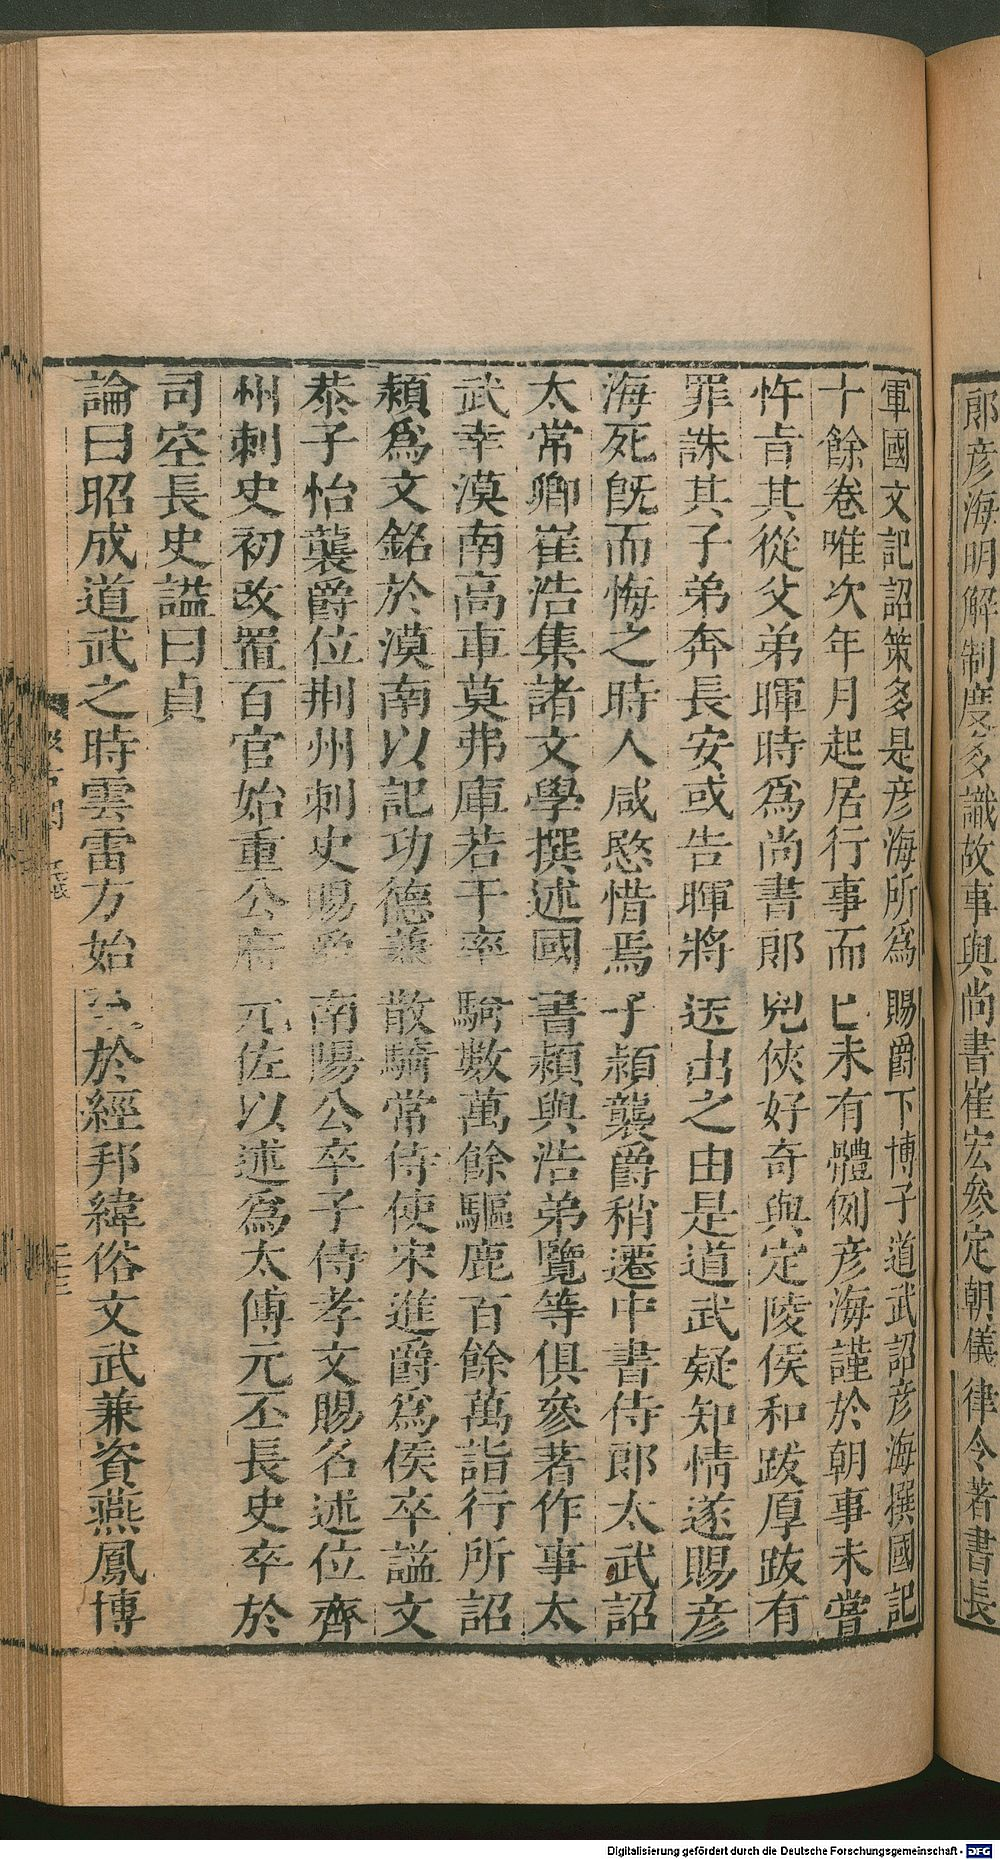 郎彦海明解制度多識故事與尚書崔宏參定朝儀律令著書長
軍國文記詔策多是彦海所爲賜爵下博子道武詔彦海撰國記
十餘卷唯次年月起居行事而已未有體例彦海謹於朝事未嘗
忤旨其從父弟暉時爲尚書郎兇俠好奇與定陵侯和跋厚跋有
罪誅其子弟奔長安或告暉將送出之由是道武疑知情遂賜彦
海死旣而悔之時人咸愍惜焉子頴襲爵稍遷中書侍郎太武詔
太常卿崔浩集諸文學撰述國書頴與浩弟覽等俱參著作事太
武幸漠南高車莫弗庫若干率騎數萬餘驅鹿百餘萬詣行所詔
頴爲文銘於漠南以記功德兼散騎常侍使宋進爵爲侯卒諡文
恭子怡襲爵位荆州刺史賜爵南陽公卒子侍孝文賜名述位齊
州刺史初改置百官始重公府元佐以述爲太傅元丕長史卒於
司空長史諡曰貞
論曰昭成道武之時雲雷方始至於經邦緯俗文武兼資燕鳳博
Digitalisierung gefördert durch die Deutsche Forschungsgemeinschaft - DFG